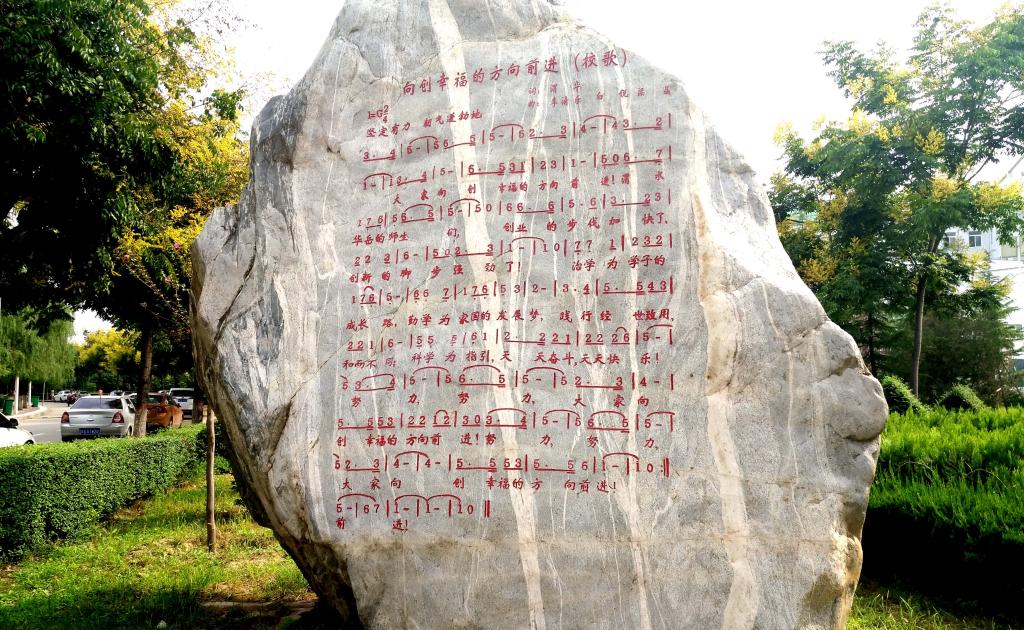 向创幸福的方向前进（校歌）
1=G 2/4
坚定有力 朝气蓬勃地
3. 4|5-|5 5 5|5-|5 2. 3|4-|4 3. 2|
1-|1 2. 4|5-|6 5 3 1|2 3|1-|5 0 6. 7|
大 家 向 创 幸福的 方向 前 进！渭 水
1 7 6|5 6 5|5-|5 0|6 6. 6|5. 6|3. 2 3|
华岳的师生 们， 创业 的 步 伐 加 快了，
2 2 3|6-|5 0 2. 3|1-|1 0|7 7 1|2 3 2|
创新 的 脚 步 强 劲了！ 治学 为 学子的
1 7 6|5-|6 6 7|1 7 6|5 3|2-|3. 4|5. 5 4 3|
成长 路，勤学 为 家国的 发 展 梦， 践 行 经 世致用，
2 2 1|6-|5 5 5|6 1|2. 2 2 1|2 2 2 6|5-|
和而不 同；科学 为 指引，天 天奋斗，天天快 乐！
5 3. 2|5-|5 6. 5|5-|5 2. 3|4-|
努 力， 努 力， 大 家 向
5. 5 5 3|2 2 1 2|3 0 3. 4|5-|5 6 5|5-|
创 幸福的方向前 进！努 力， 努 力，
5 2. 3|4-|4-|5. 5 5 3|5. 5 6|1-|1 0:‖
大 家 向 创 幸福的 方 向前 进！
5-|6 7|1-|1-|1 0‖
前 进！